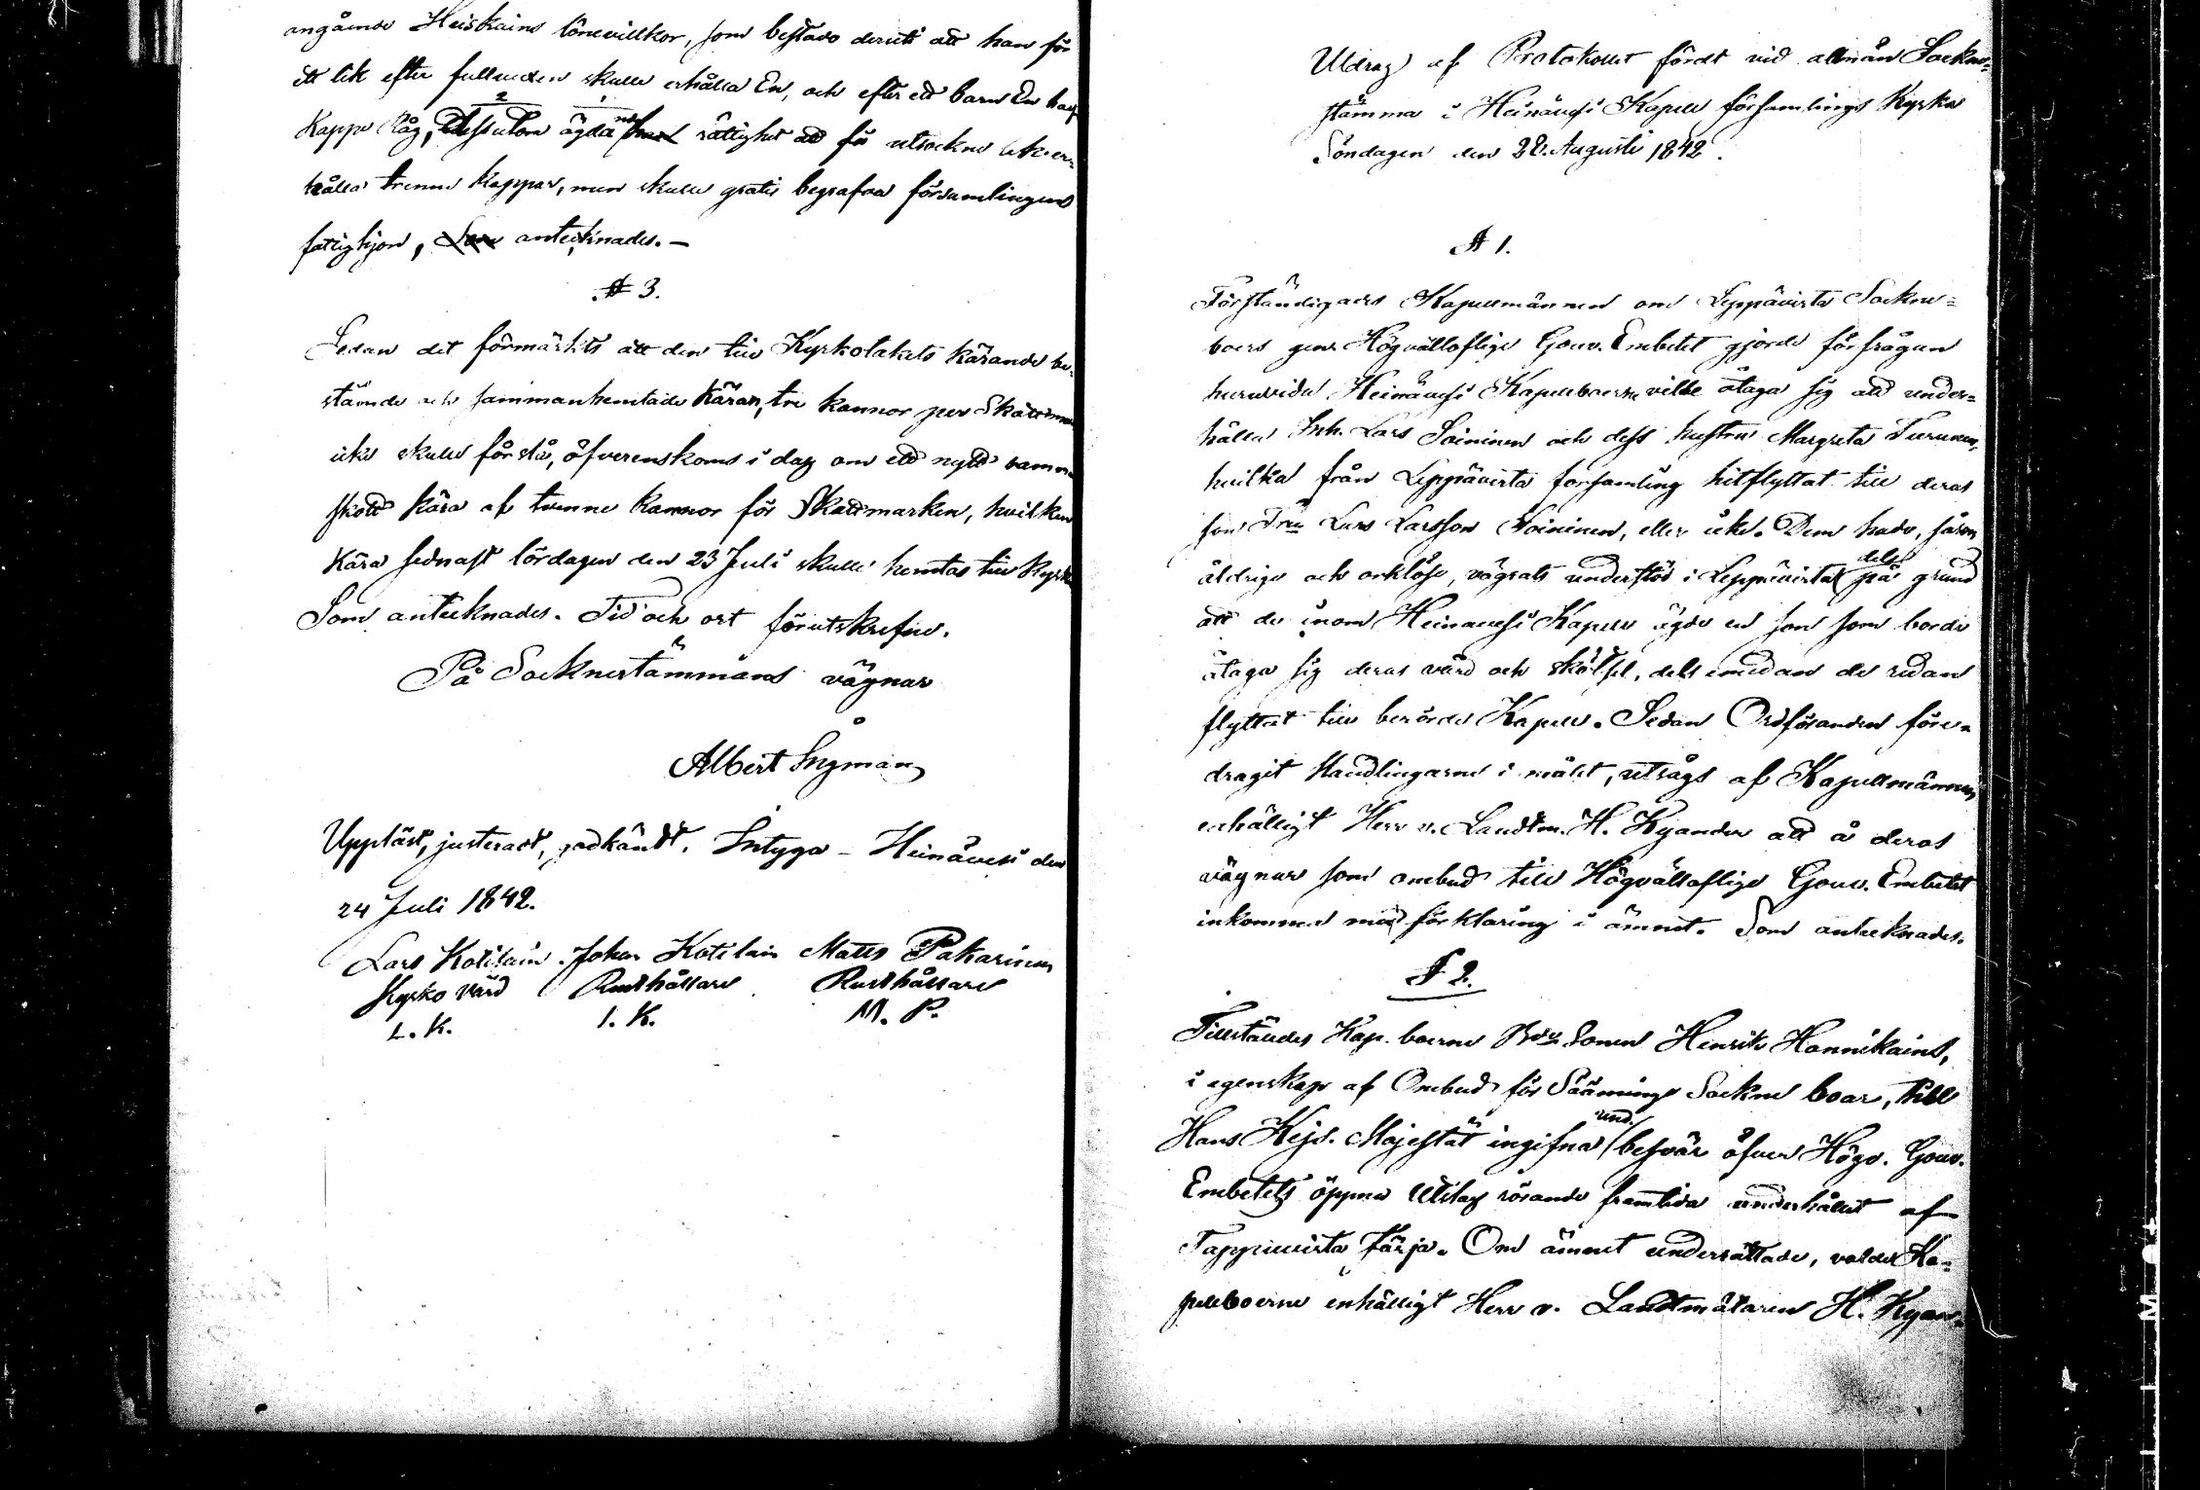 angående Heiskains lönevillkor, som bestavo deruti att han för
ett lik efter fullvuxen skulle erhålla En, och efter ett barn En half
Kappe Råg, dessutom ägde rättighet att för utsockne lik er-
hålla trenne Kappar, men skulle gratis begrafva församlingens
fattighjon, Som antecknades. —
§ 3.
Sedan det förmärkts att den till Kyrkotakets tärande be-
stämde och sammanhemtade tjäran, tre kannor per Skattmark
icke skulle förslå, öfverenskoms i dag om ett nytt samman-
skott tjära af tvenne kannor för Skattmarken, hvilken
tjära sednast lördagen den 23 Juli skulle hemtas till Kyrkan
Som antecknades. Tid och ort förutskrefne.
På Socknestämmans vägnar
Albert Ingman
Uppläst, justeradt, godkändt. Intyga – Heinävesi den
24 Juli 1842.
Lars Kotilain Johan Kotilain Matts Pakarinen
Kyrko Värd Rusthållare Rusthållare
L. K. I. K. M. P.
Utdrag af Protokollet fördt vid allmän Sockne-
stämma i Heinävesi Kapell församlings Kyrka
Söndagen den 28 Augusti 1842.
§ 1.
Förständigades Kapellmännen om Leppävirta Sockne-
boers genr Högvällofliga Gouv. Embetet gjorde förfrågan
huruvida Heinävesi Kapellboerne ville åtaga sig att under-
hålla Inh. Lars Soininen och dess hustru Margreta Turunen,
hvilka från Leppävirta församling hitflyttat till deras
son Lars Larsson Soininen, eller icke. Dem hade, såsom
åldrige och orklöse, vägrats understöd i Leppävirta dels på grund
att de inom Heinävesi Kapell ägde en son som borde
åtaga sig deras vård och skötsel, dels emedan de redan
flyttat till berörde Kapell. Sedan Ordföranden före-
dragit Handlingarne i målet, utsågs af Kapellmännen
enhälligt Herr v. Landtm. H. Kyander att å deras
vägnar som ombud till Högvällofliga Gouv. Embetet
inkomma med förklaring i ämnet. Som antecknades.
§ 2.
Tillställdes Kap. boerne Bde Sonen Henrik Hannikains,
i egenskap af Ombud för Sääminge Sockne boar, till
Hans Kejs. Majestät ingifna und. besvär öfver Högv. Gouv.
Embetets öppna Utslag rörande framtida underhållet af
Tappuvirta färja. Om ämnet underrättade, valde Ka-
pellboerne enhälligt Herr v. Landtmätaren H. Kyan-